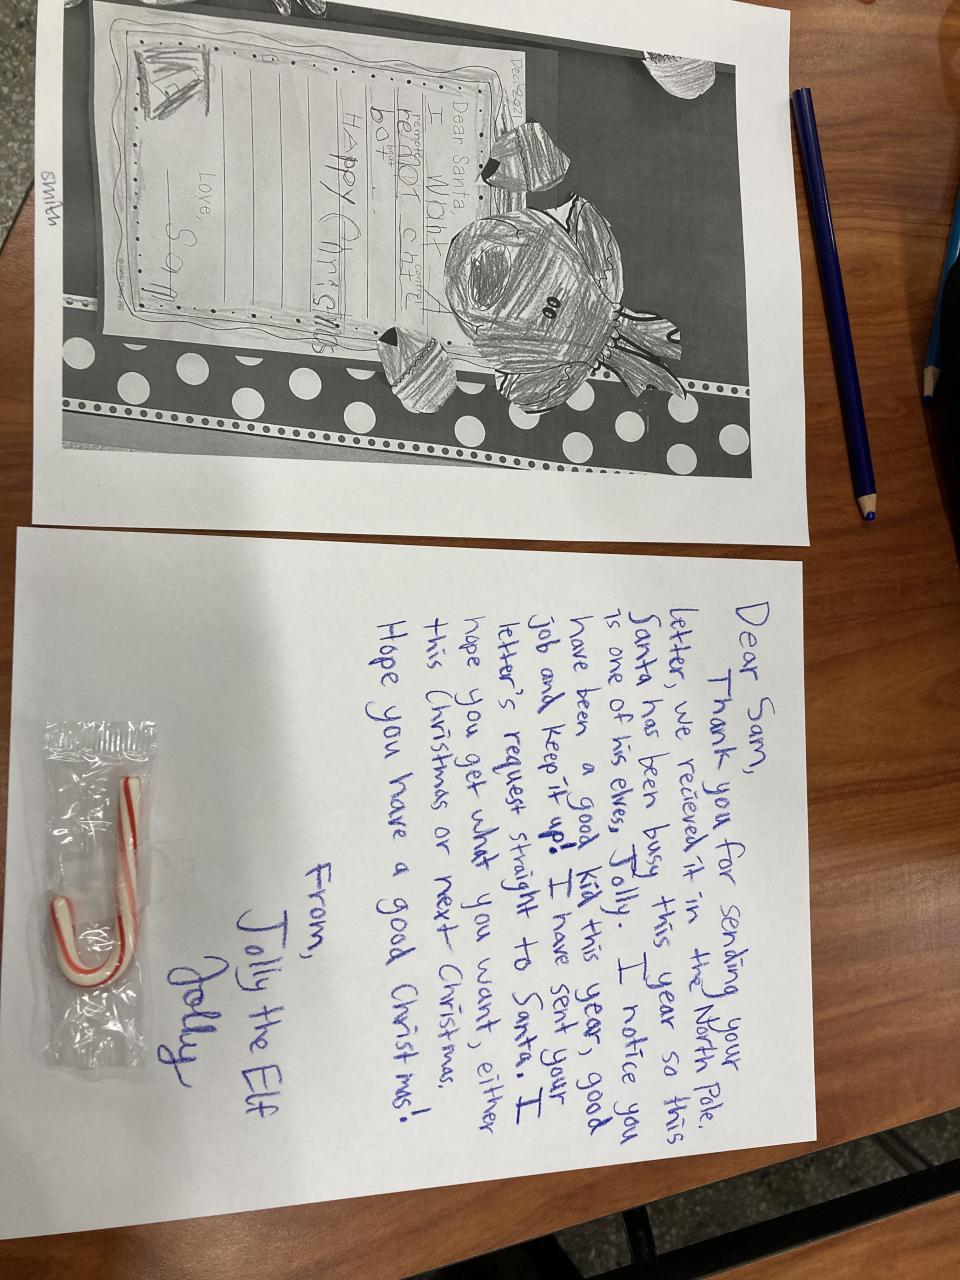 Dec
Dear Santa,
I want
remote control
remot chtl
boat
bot
Happy Christmas
Love,
Sam
smith
Dear Sam,
Thank you for sending your
letter, we recieved it in the North Pole.
Santa has been busy this year so this
is one of his elves, Jolly. I notice you
have been a good kid this year, good
job and keep it up! I have sent your
letter's request straight to Santa. I
hope you get what you want, either
this Christmas or next Christmas.
Hope you have a good Christmas!
From,
Jolly the Elf
Jolly